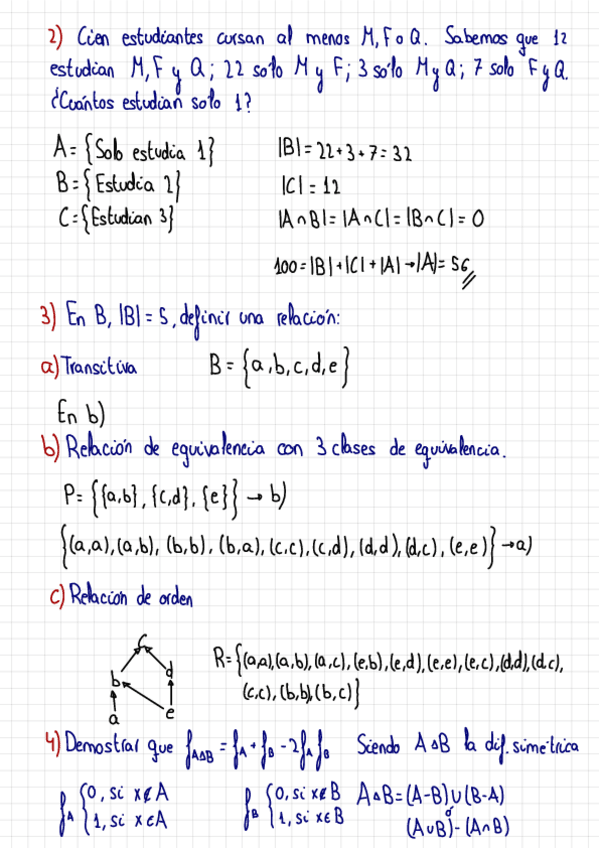 2) Cien estudiantes cursan al menos M, F o Q. Sabemos que 12
estudian M, F y Q; 22 solo M y F; 3 sólo M y Q; 7 solo F y Q.
¿Cuántos estudian solo 1?
A = {Solo estudia 1} |B| = 22+3+7 = 32
B = {Estudia 2} |C| = 12
C = {Estudian 3} |A∩B| = |A∩C| = |B∩C| = 0
100 = |B| + |C| + |A| → |A| = 56
3) En B, |B| = 5, definir una relación:
a) Transitiva B = {a,b,c,d,e}
En b)
b) Relación de equivalencia con 3 clases de equivalencia.
P = {{a,b}, {c,d}, {e}} → b)
{(a,a),(a,b), (b,b), (b,a), (c,c), (c,d), (d,d), (d,c), (e,e)} → a)
c) Relación de orden
c
b d
a e
R = {(a,a),(a,b),(a,c),(e,b),(e,d),(e,e),(e,c),(d,d),(d,c),
(c,c),(b,b),(b,c)}
4) Demostrar que f_{A∆B} = f_A + f_B - 2f_A f_B Siendo A∆B la dif. simétrica
f_A {0, si x∉A f_B {0, si x∉B A∆B = (A-B)∪(B-A)
1, si x∈A 1, si x∈B ó
(A∪B)-(A∩B)